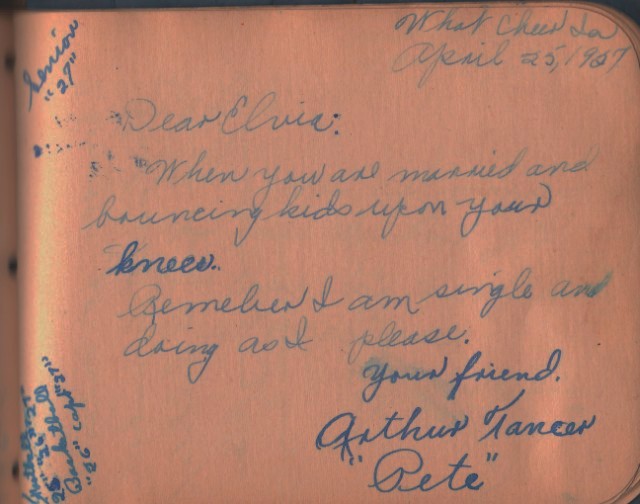 What Cheer Ia
April 25, 1927
Senior
"27"
Dear Elvia:
"When you are married and
bouncing kids upon your
knees.
Remeber I am single and
doing as I please.
Your friend.
Arthur Tancer
"Pete"
Basketball
"26" capt "27"